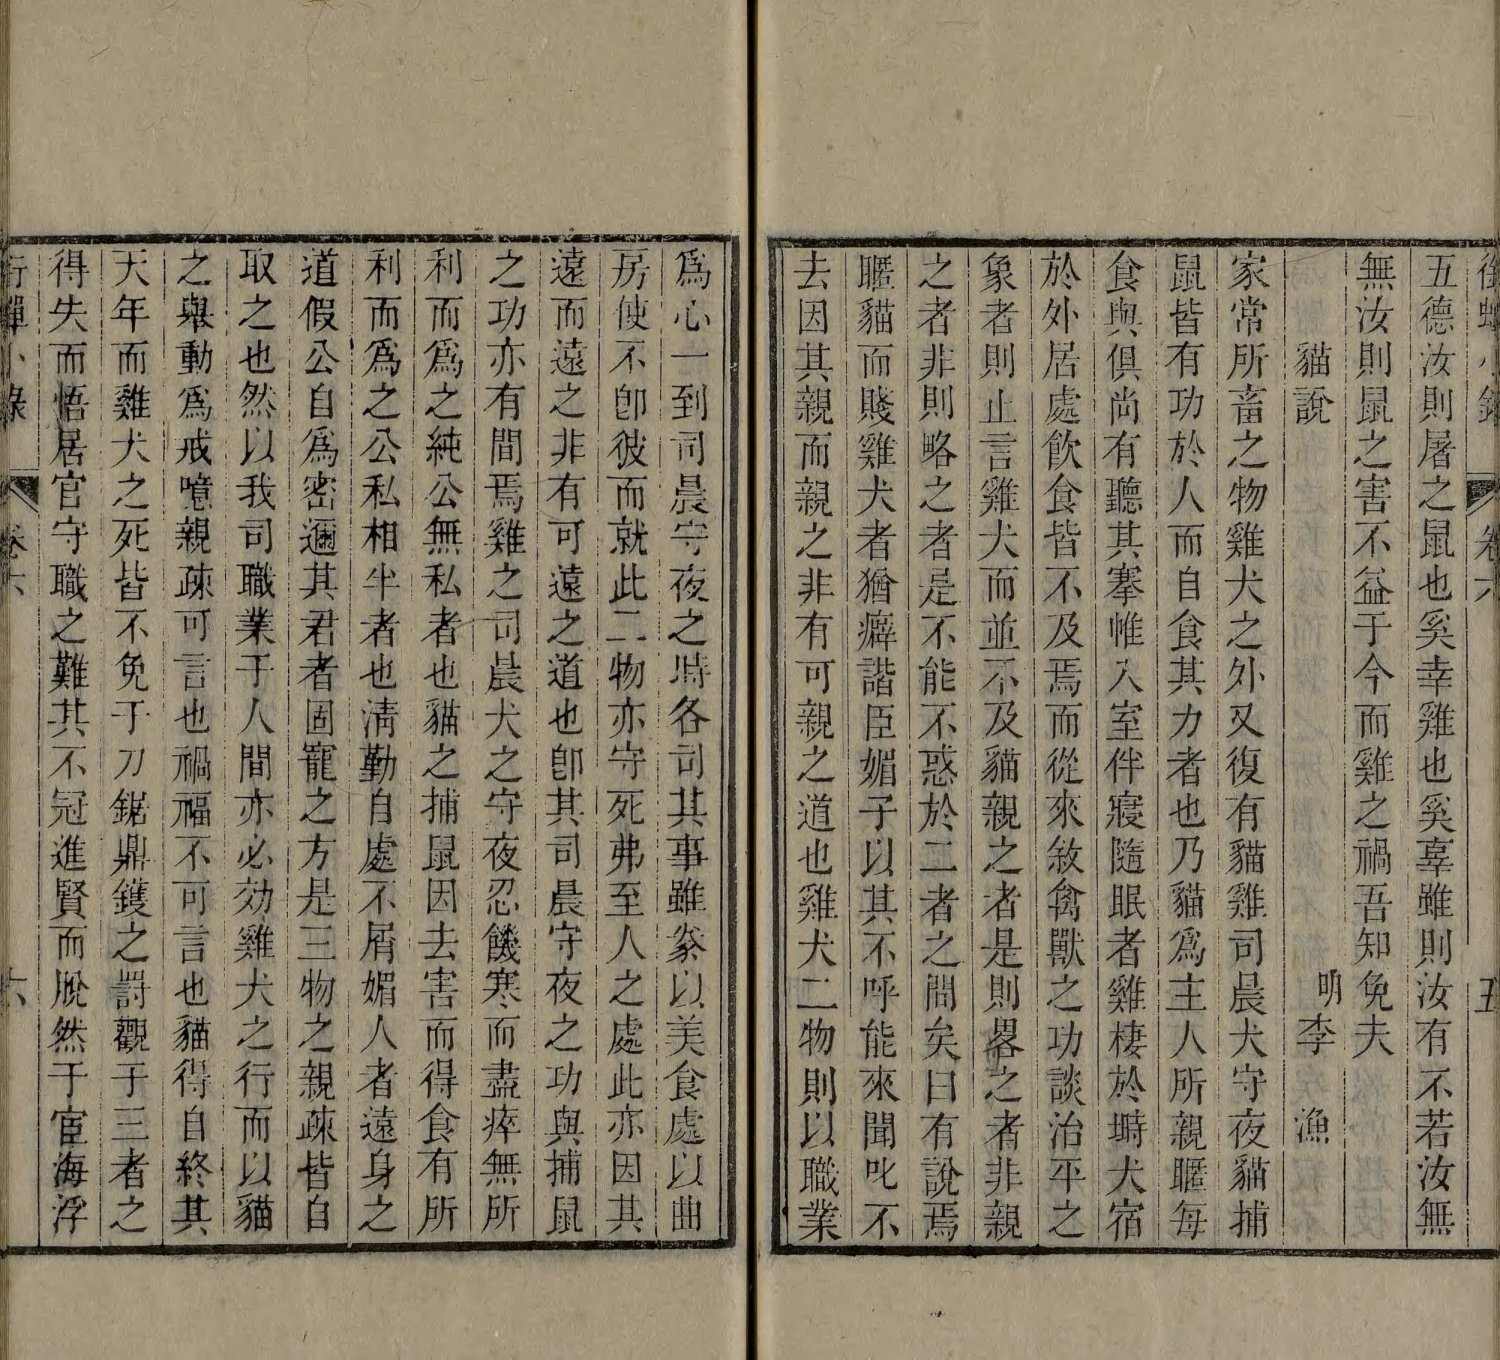 銜蟬小錄 卷六 五
五德汝則屠之鼠也奚幸雞也奚辜雖則汝有不若汝無
無汝則鼠之害不益于今而雞之禍吾知免夫
貓說 明 李漁
家常所畜之物雞犬之外又復有貓雞司晨犬守夜貓捕
鼠皆有功於人而自食其力者也乃貓爲主人所親暱每
食與俱尚有聽其搴帷入室伴寢隨眠者雞棲於塒犬宿
於外居處飲食皆不及焉而從來敘禽獸之功談治平之
象者則止言雞犬而並不及貓親之者是則畧之者非親
之者非則略之者是不能不惑於二者之間矣曰有說焉
暱貓而賤雞犬者猶癖諧臣媚子以其不呼能來聞叱不
去因其親而親之非有可親之道也雞犬二物則以職業
爲心一到司晨守夜之時各司其事雖豢以美食處以曲
房使不卽彼而就此二物亦守死弗至人之處此亦因其
遠而遠之非有可遠之道也卽其司晨守夜之功與捕鼠
之功亦有間焉雞之司晨犬之守夜忍饑寒而盡瘁無所
利而爲之純公無私者也貓之捕鼠因去害而得食有所
利而爲之公私相半者也淸勤自處不屑媚人者遠身之
道假公自爲密邇其君者固寵之方是三物之親疎皆自
取之也然以我司職業于人間亦必効雞犬之行而以貓
之舉動爲戒噫親疎可言也禍福不可言也貓得自終其
天年而雞犬之死皆不免于刀鋸鼎鑊之罰觀于三者之
得失而悟居官守職之難其不冠進賢而脫然于宦海浮
卷六 六